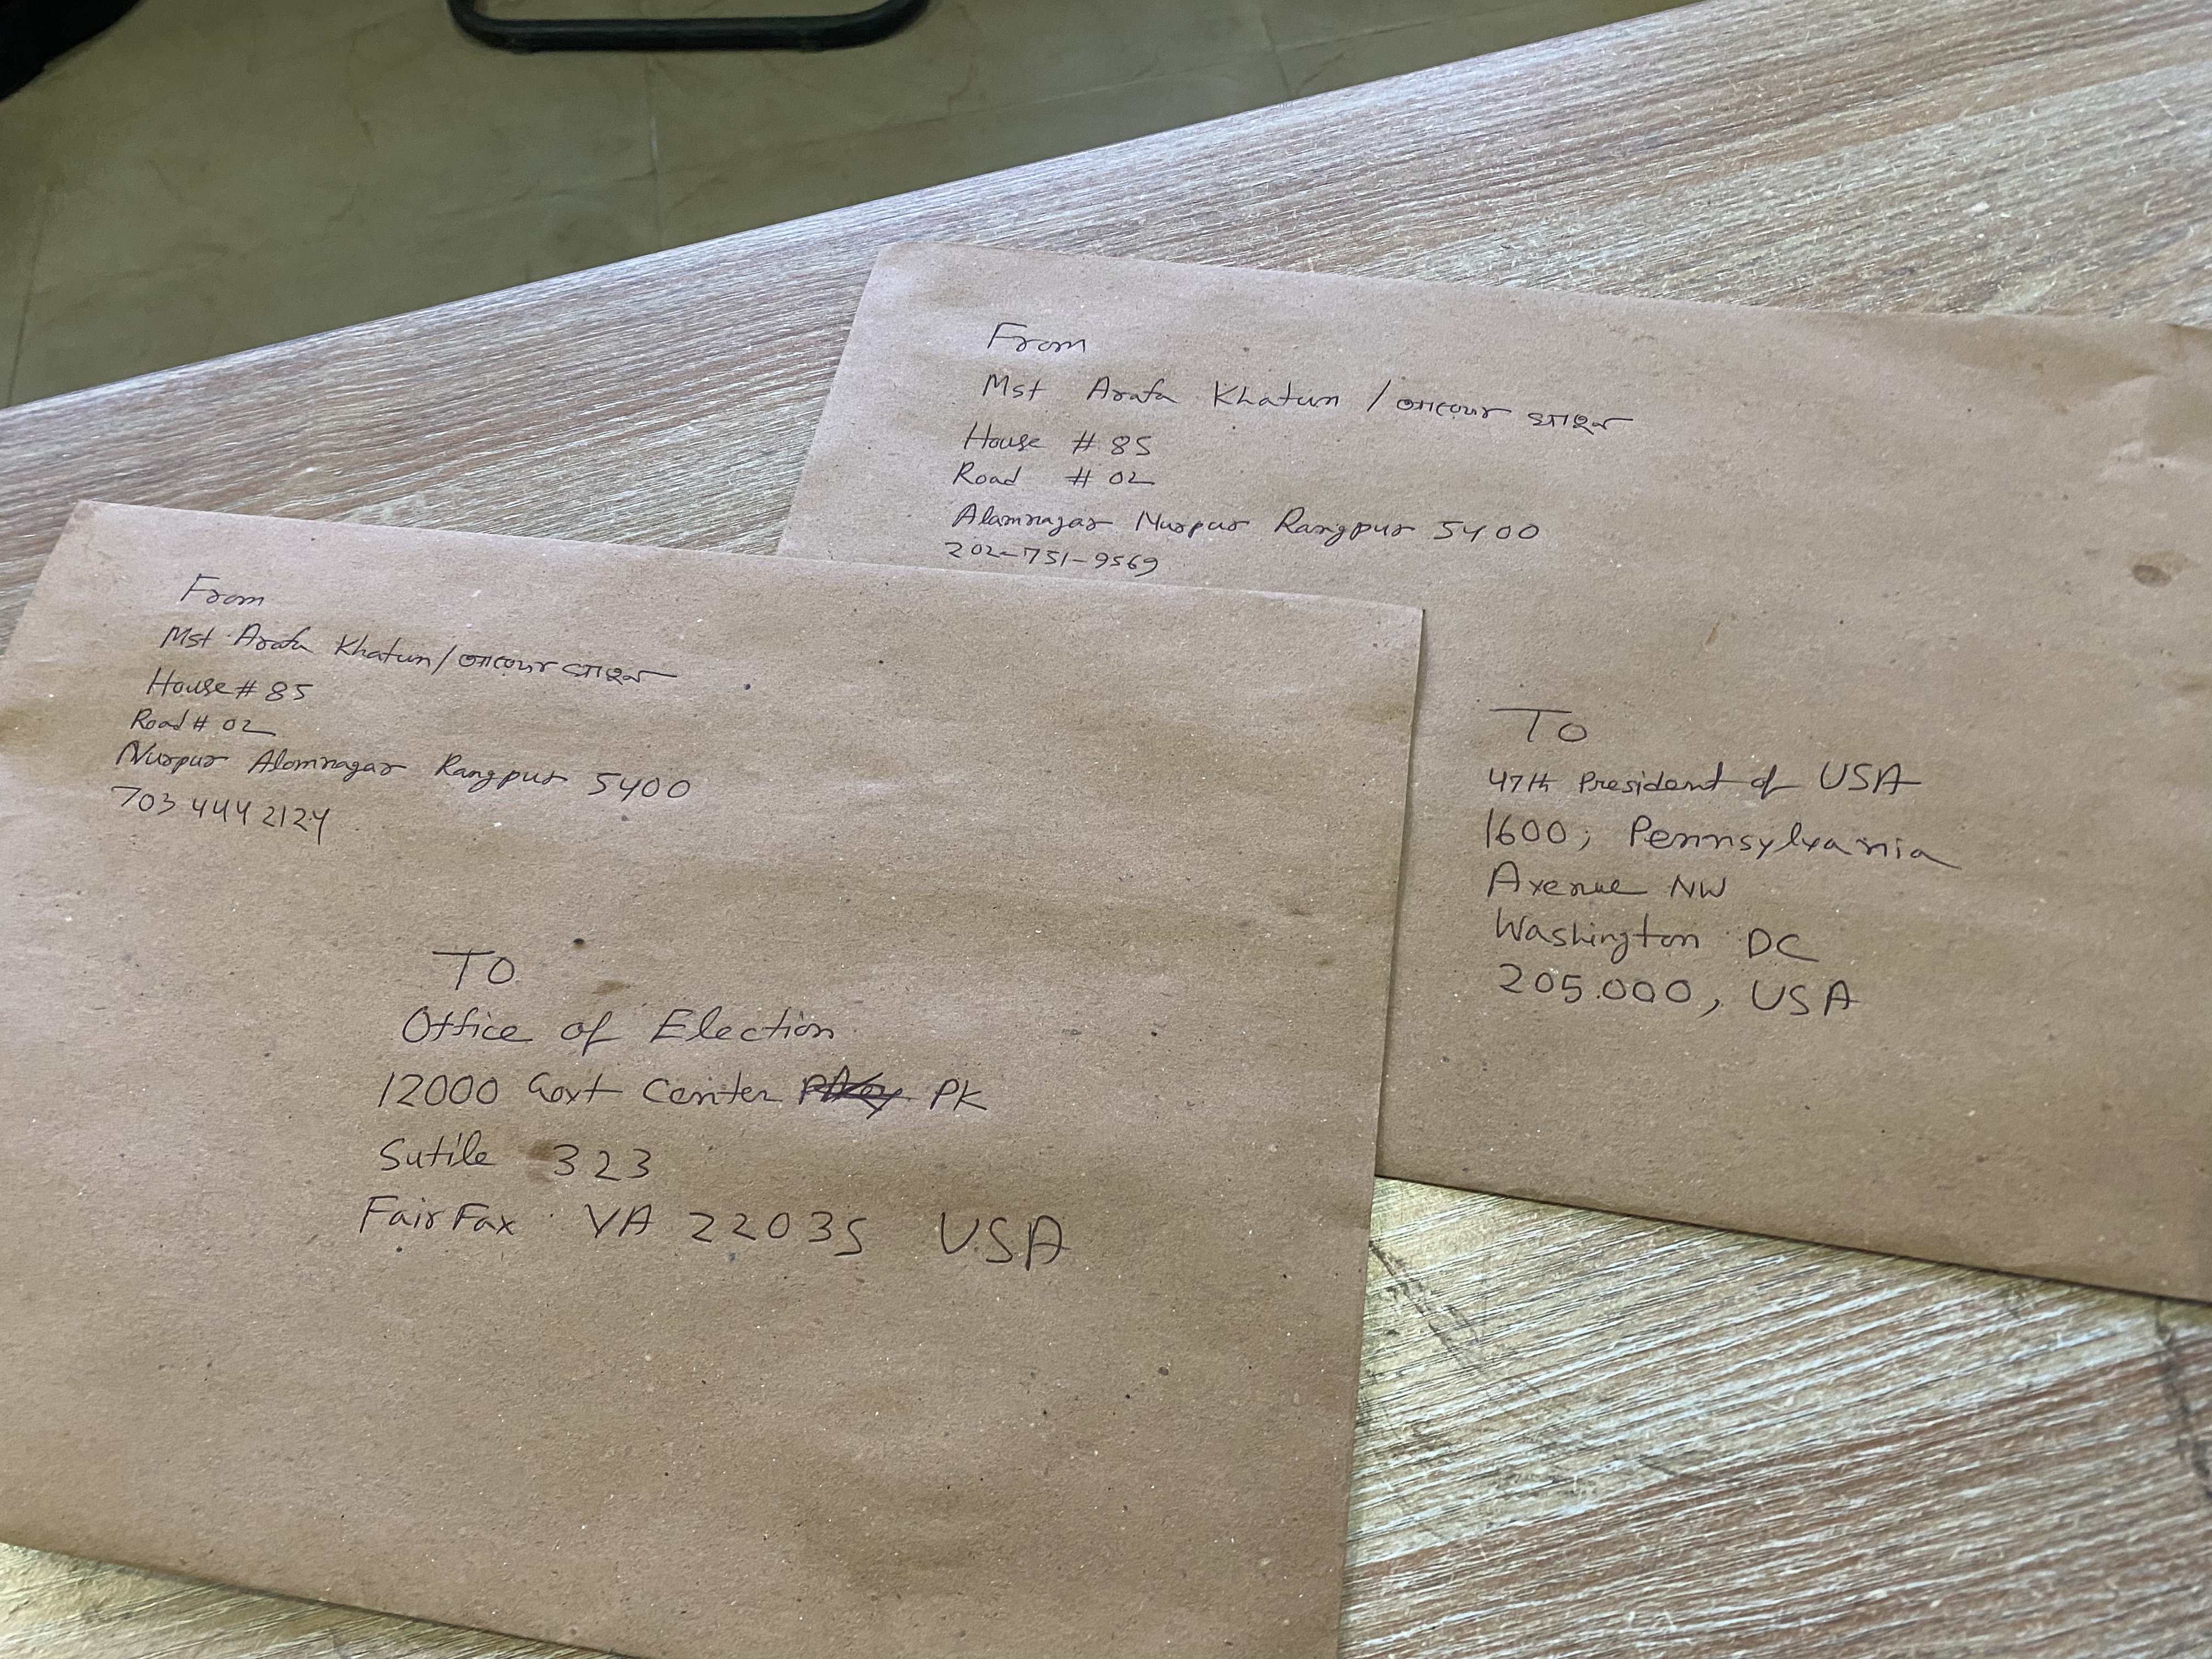 From
Mst Arafa Khatun /
House # 85
Road # 02
Alamnagar Nurpur Rangpur 5400
202-751-9569
To
47th President of USA
1600, Pennsylvania
Avenue NW
Washington DC
205.000, USA
From
Mst Arafa Khatun/
House # 85
Road # 02
Nurpur Alamnagar Rangpur 5400
703 444 2124
To
Office of Election
12000 Govt Center PK
Sutile 323
FairFax VA 22035 USA